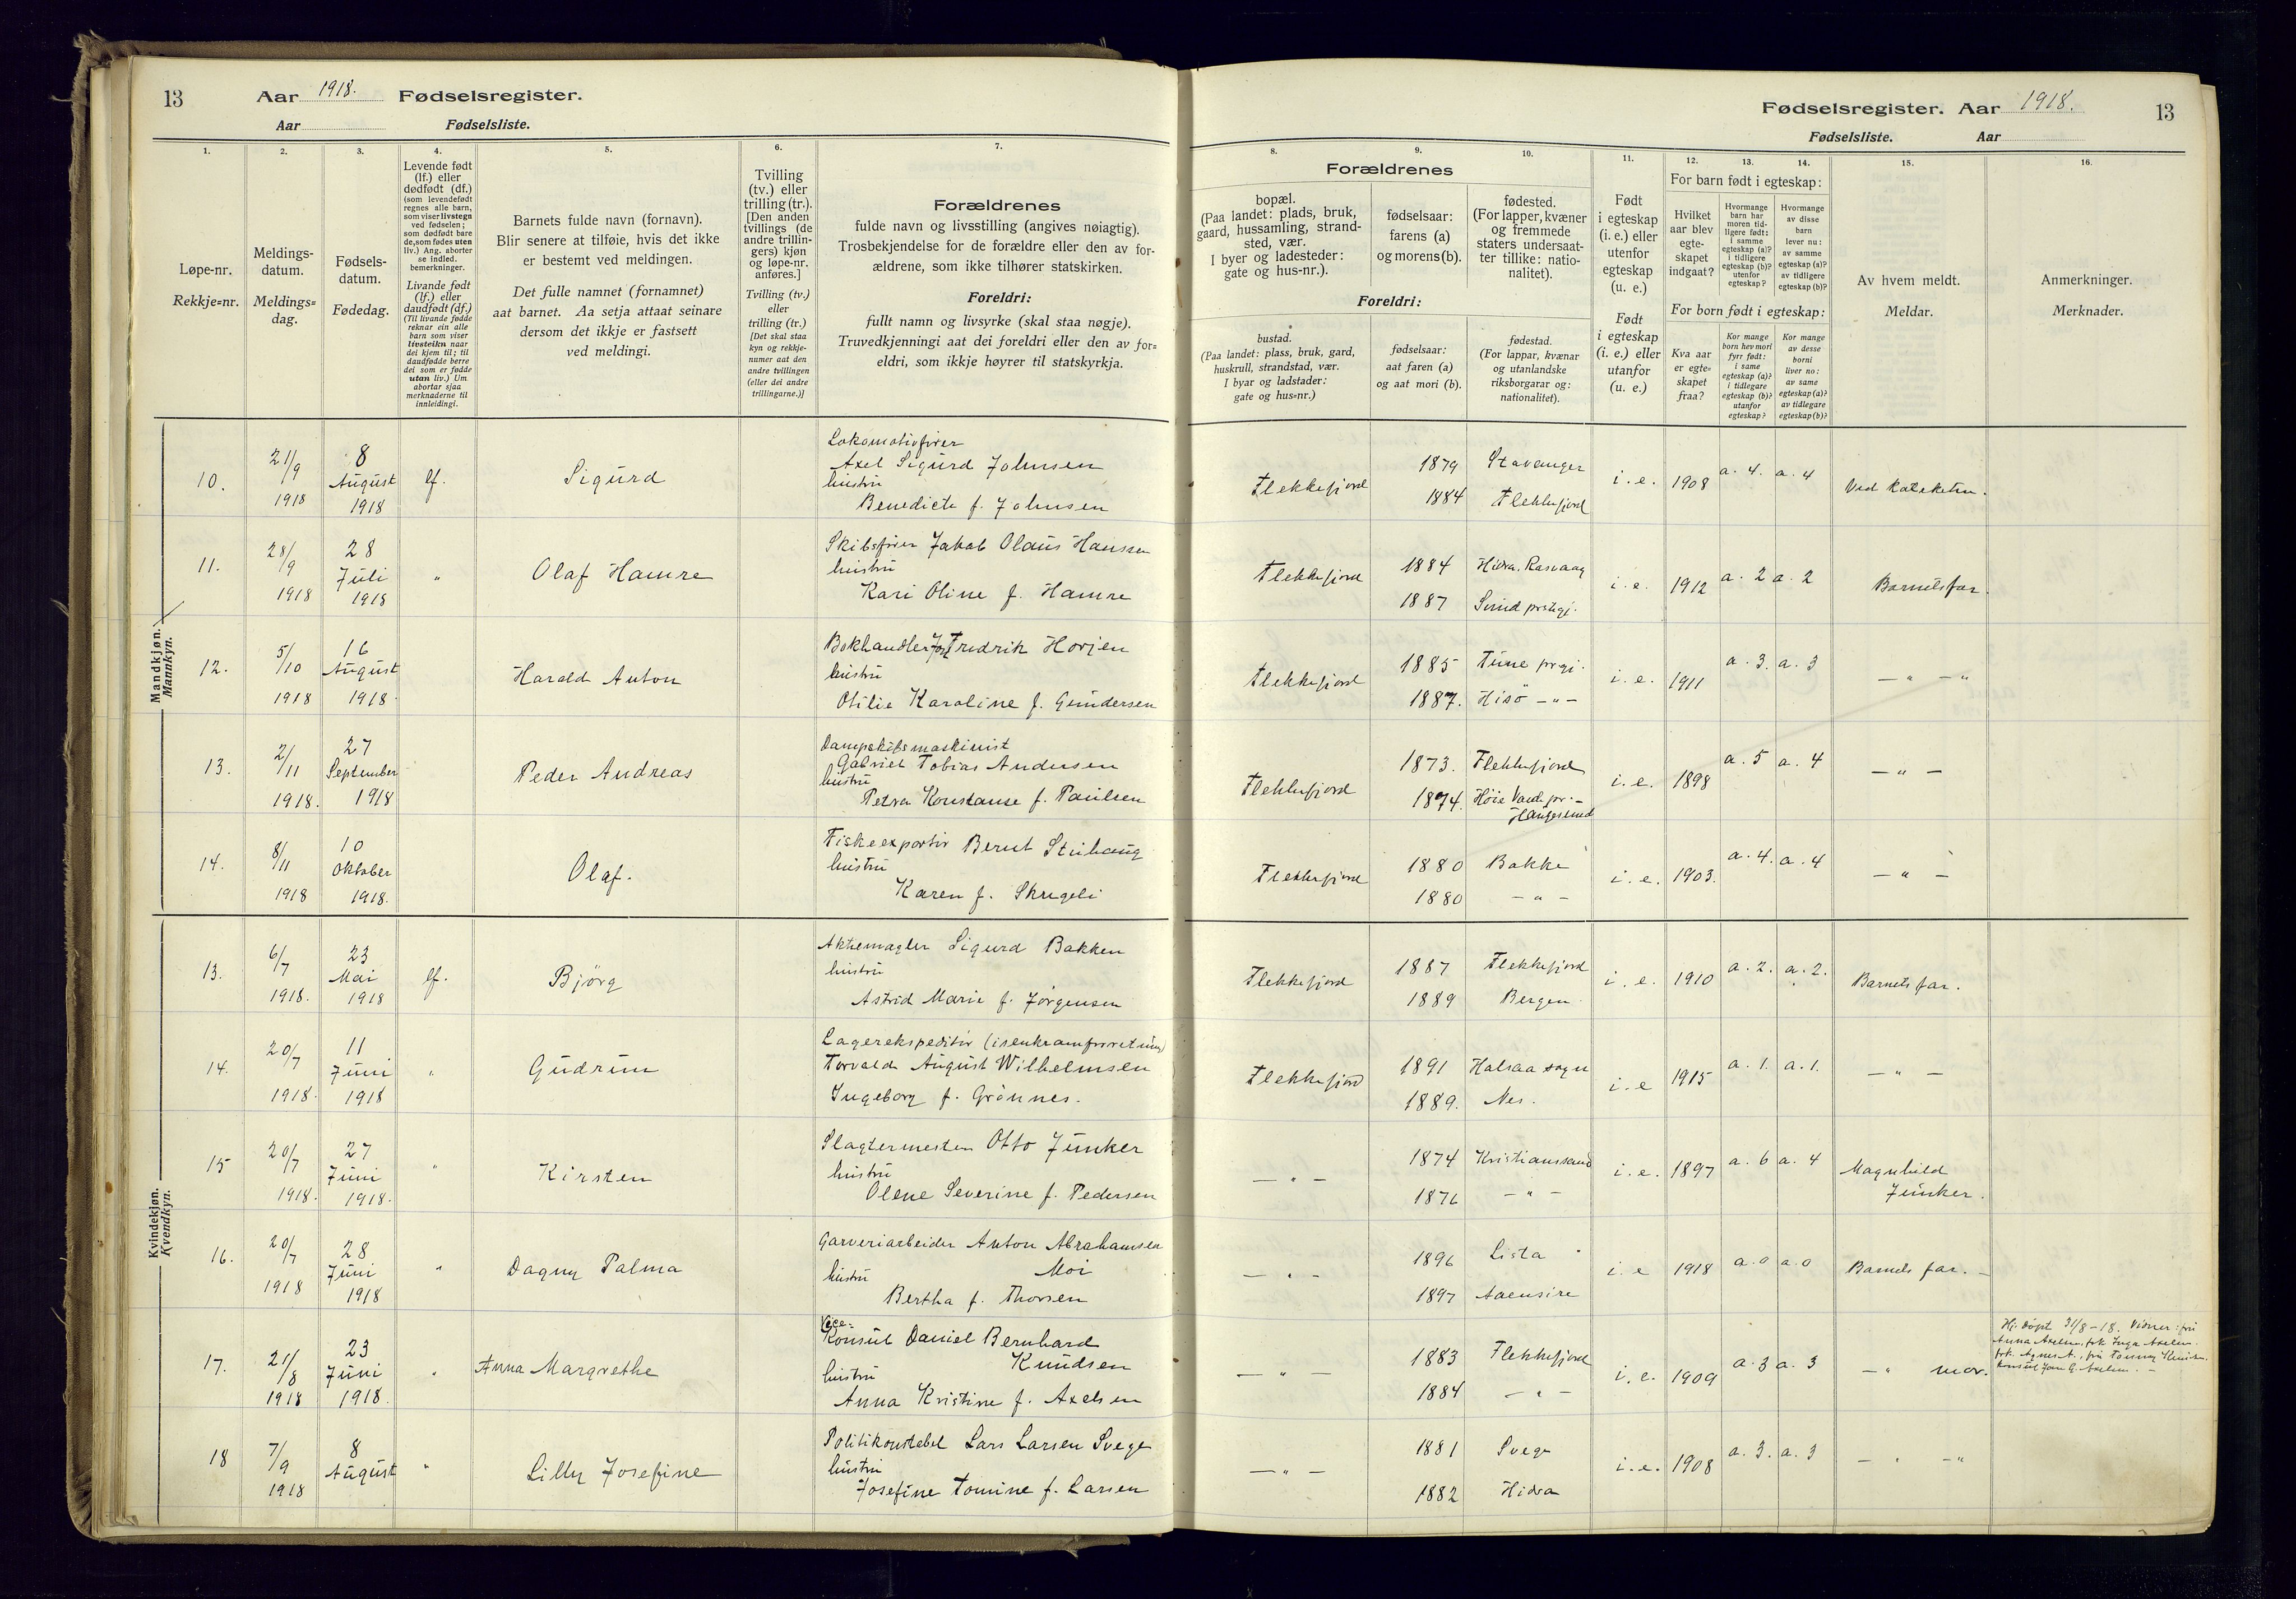 13
Aar 1918. Fødselsregister.
Aar Fødselsliste.
1. 2. 3. 4. 5. 6. 7.
Løpe-nr.
Rekkje=nr.
Meldings-
datum.
Meldings=
dag.
Fødsels-
datum.
Fødedag.
Levende født
(lf.) eller
dødfødt (df.)
(som levendefødt
regnes alle barn,
som viser livstegn
ved fødselen;
som dødfødt bare
de, som fødes uten
liv.) Ang. aborter
se indled.
bemerkninger.
Livande født
(lf.) eller
daudfødt (df.)
(Til livande fødde
reknar ein alle
barn som viser
livsteikn naar
dei kjem til; til
daudfødde berre
dei som er fødde
utan liv.) Um
abortar sjaa
merknaderne til
innleidingi.
Barnets fulde navn (fornavn).
Blir senere at tilføie, hvis det ikke
er bestemt ved meldingen.
Det fulle namnet (fornamnet)
aat barnet. Aa setja attaat seinare
dersom det ikkje er fastsett
ved meldingi.
Tvilling
(tv.) eller
trilling (tr.).
[Den anden
tvillings (de
andre trillin-
gers) kjøn
og løpe-nr.
anføres.]
Tvilling (tv.)
eller
trilling (tr.)
[Det skal staa
kyn og rekkje-
numer aat den
andre tvillingen
(eller dei andre
trillingarne.)]
Forældrenes
fulde navn og livsstilling (angives nøiagtig).
Trosbekjendelse for de forældre eller den av for-
ældrene, som ikke tilhører statskirken.
Foreldri:
fullt namn og livsyrke (skal staa nøgje).
Truvedkjenningi aat dei foreldri eller den av for=
eldri, som ikkje høyrer til statskyrkja.
Mandkjøn.
Mannkyn.
10. 21/9 1918 8 August 1918 lf. Sigurd
Lokomotivfører
Axel Sigurd Johnsen
hustru
Benedicte f. Johnsen
11. 28/9 1918 28 Juli 1918 " Olaf Hamre
Skibsfører Jakob Olaus Hanssen
hustru
Kari Oline f. Hamre
12. 5/10 1918 16 August 1918. Harald Anton
Bokhandler Fredrik Horjen
hustru
Otilie Karoline f. Gundersen
13. 2/11 1918. 27 September 1918 Peder Andreas
Dampskibsmaskinist
Gabriel Tobias Andersen
hustru
Petra Konstanse f. Paulsen
14. 8/11 1918 10 Oktober 1918. Olaf.
Fiskeexportør Bernt Stuhaug
hustru
Karen f. Skregeli
Kvindekjøn.
Kvendkyn.
13. 6/7 1918. 23 Mai 1918 lf. Bjørg
Aktiemægler Sigurd Bakken
hustru
Astrid Marie f. Jørgensen
14. 20/7 1918. 11 Juni 1918 " Gudrun
Lagerekspeditør
Torvald August Wilhelmsen
Ingeborg f. Grönnes.
15 20/7 1918. 27 Juni 1918. " Kirsten
Slagtermester Otto Junker
hustru
Olene Severine f. Pedersen
16. 20/7 1918 28 Juni 1918 " Dagny Palma
Garveriarbeider Anton Abrahamsen
hustru Moi
Bertha f. Thorsen
17. 21/8 1918 23 Juni 1918 " Anna Margrethe
Vice-
Konsul Daniel Bernhard
hustru Knudsen
Anna Kristine f. Axelsen
18 7/9 1918 8 August " Lilly Josefine
Politikonstabel Lars Larsen Svege
hustru
Josefine Tomine f. Larsen
Fødselsregister. Aar 1918. 13
Fødselsliste. Aar
8. 9. 10. 11. 12. 13. 14. 15. 16.
Forældrenes
bopæl.
(Paa landet: plads, bruk,
gaard, hussamling, strand-
sted, vær.
I byer og ladesteder:
gate og hus-nr.).
fødselsaar:
farens (a)
og morens (b).
fødested.
(For lapper, kvæner
og fremmede
staters undersaat-
ter tillike: natio-
nalitet).
Foreldri:
bustad.
(Paa landet: plass, bruk, gard,
huskrull, strandstad, vær.
I byar og ladstader:
gate og hus=nr.)
fødselsaar:
aat faren (a)
og aat mori (b).
fødestad.
(For lappar, kvænar
og utanlandske
riksborgarar og:
nationalitet).
Født
i egteskap
(i. e.) eller
utenfor
egteskap
(u. e.)
Født
i egteskap
(i. e.) eller
utanfor
(u. e.)
For barn født i egteskap:
Hvilket
aar blev
egte-
skapet
indgaat?
Hvormange
barn har
moren tid-
ligere født:
i samme
egteskap (a)?
i tidligere
egteskap (b)?
utenfor
egteskap?
Hvormange
av disse
barn
lever nu:
av samme
egteskap (a)?
av tidligere
egteskap (b)?
For born født i egteskap:
Kva aar
er egte=
skapet
fraa?
Kor mange
born hev mori
fyrr født:
i same
egteskap (a)?
i tidlegare
egteskap (b)?
utanfor
egteskap?
Kor mange
av desse
borni
liver no:
av same
egteskap (a)?
av tidlegare
egteskap (b)?
Av hvem meldt.
Meldar.
Anmerkninger.
Merknader.
Flekkefjord 1879 Stavanger i. e. 1908 a. 4. a. 4
1884 Flekkefjord Ved Kateketen.
Flekkefjord 1884 Hidra, Rasvaag i. e. 1912 a. 2 a. 2 Barnets far.
1887 Sund prstgj.
Flekkefjord 1885 Tune prgj. i. e. 1911 a. 3. a. 3 — " — "
1887. Hisö — " —
Flekkefjord 1873. Flekkefjord i. e. 1898 a. 5 a. 4 — " —
1874.
Flekkefjord 1880 Bakke i. e. 1903. a. 4. a. 4 — " —
1880 — " —
Flekkefjord 1887 Flekkefjord i. e. 1910 a. 2. a. 2. Barnets far.
1889 Bergen.
Flekkefjord 1891 Halsaa sogn i. e 1915 a. 1. a. 1. — " —
1889. Nes.
— " — 1874 Kristianssand i. e. 1897 a. 6 a. 4 Magnhild
1876 — " — Junker.
— " — 1896 Lista i. e 1918 a. 0 a. 0 Barnets far. —
1897 Aaensire
— " — 1883 Flekkefjord i. e. 1909 a. 3 a. 3 — " mor.
1884 — " —
Hj. døpt 31/8-18.
— " — 1881 Svege i. e. 1908 a. 3. a. 3 — " — "
1882 Hidra